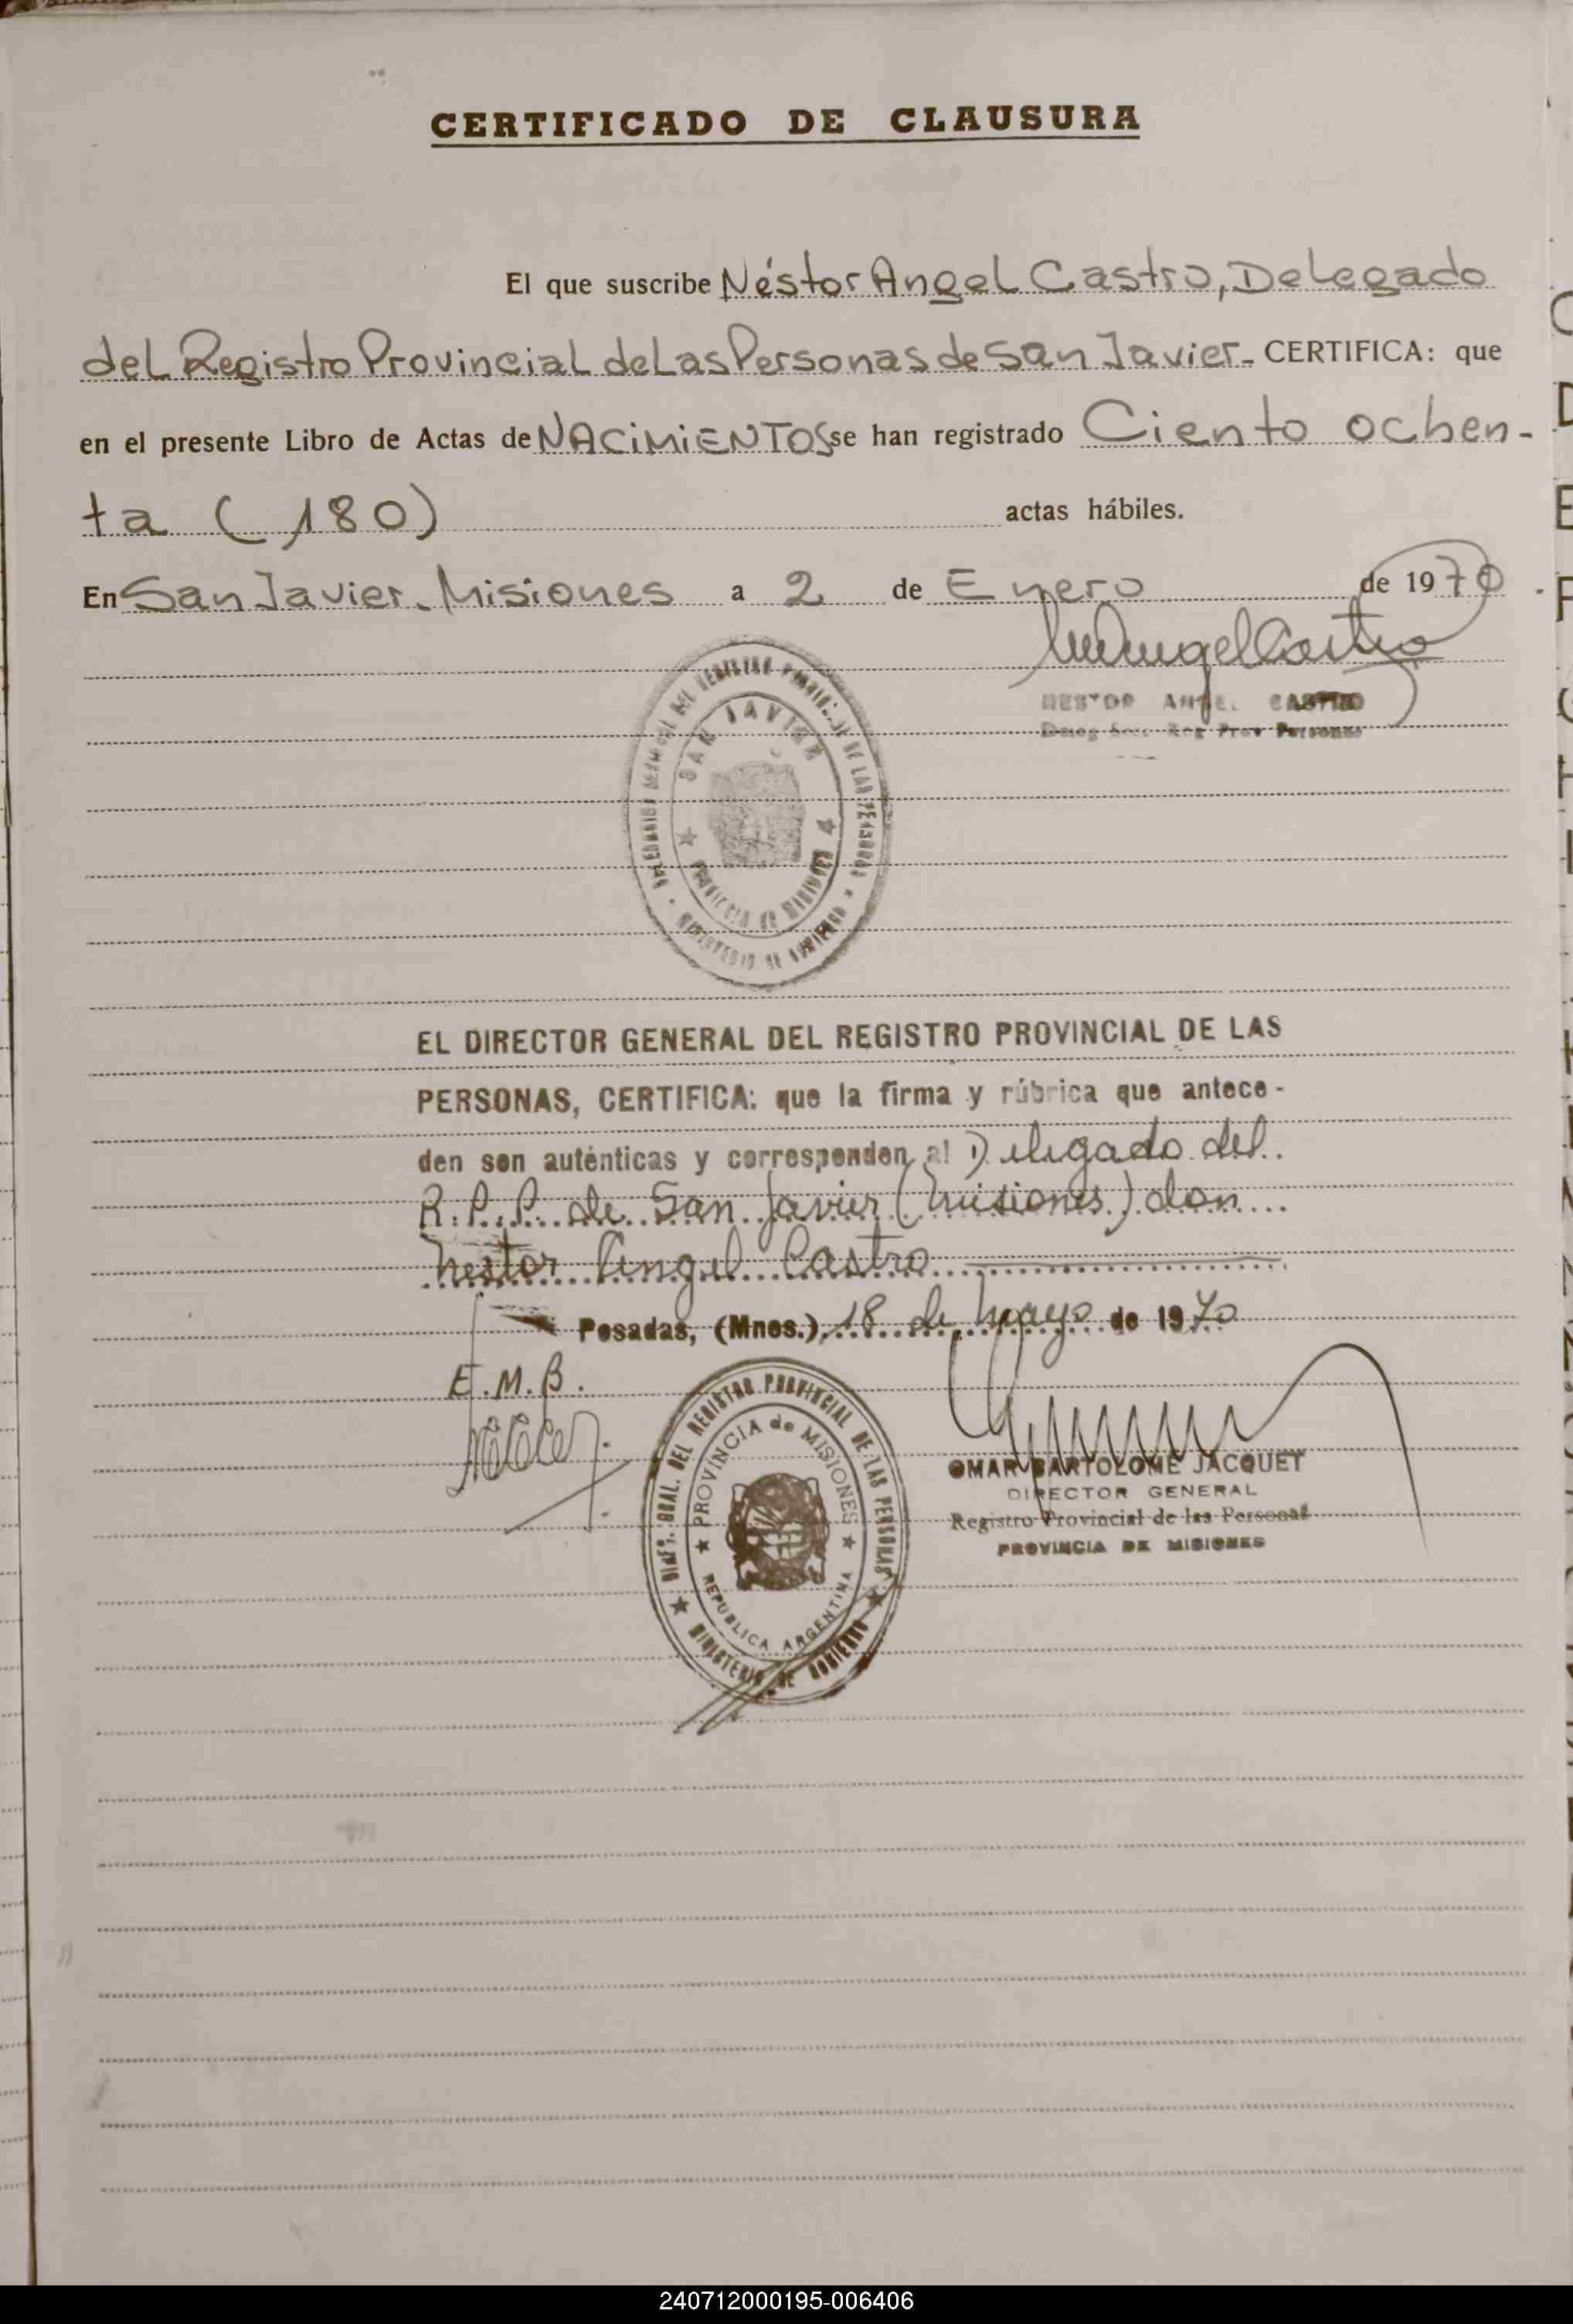 CERTIFICADO DE CLAUSURA
El que suscribe Néstor Angel Castro, Delegado
del Registro Provincial de Las Personas de San Javier - CERTIFICA: que
en el presente Libro de Actas de NACIMIENTOS se han registrado Ciento ochen-
ta (180) actas hábiles.
En San Javier. Misiones a 2 de Enero de 1970
NESTOR ANGEL CASTRO
Prov Personas
DEL REGISTRO DE LAS PERSONAS
SAN JAVIER
PROVINCIA DE MISIONES
MINISTERIO DE GOBIERNO
EL DIRECTOR GENERAL DEL REGISTRO PROVINCIAL DE LAS
PERSONAS, CERTIFICA: que la firma y rúbrica que antece-
den son auténticas y corresponden al Delegado del
R.P.P. de San Javier (Misiones) don
Nestor Angel Castro
Posadas, (Mnes.) 18 de Mayo de 1970
E.M.B.
GRAL. DEL REGISTRO PROVINCIAL DE LAS PERSONAS
PROVINCIA de MISIONES
REPUBLICA ARGENTINA
MINISTERIO DE GOBIERNO
OMAR BARTOLOME JACQUET
DIRECTOR GENERAL
Registro Provincial de las Personas
PROVINCIA DE MISIONES
240712000195-006406